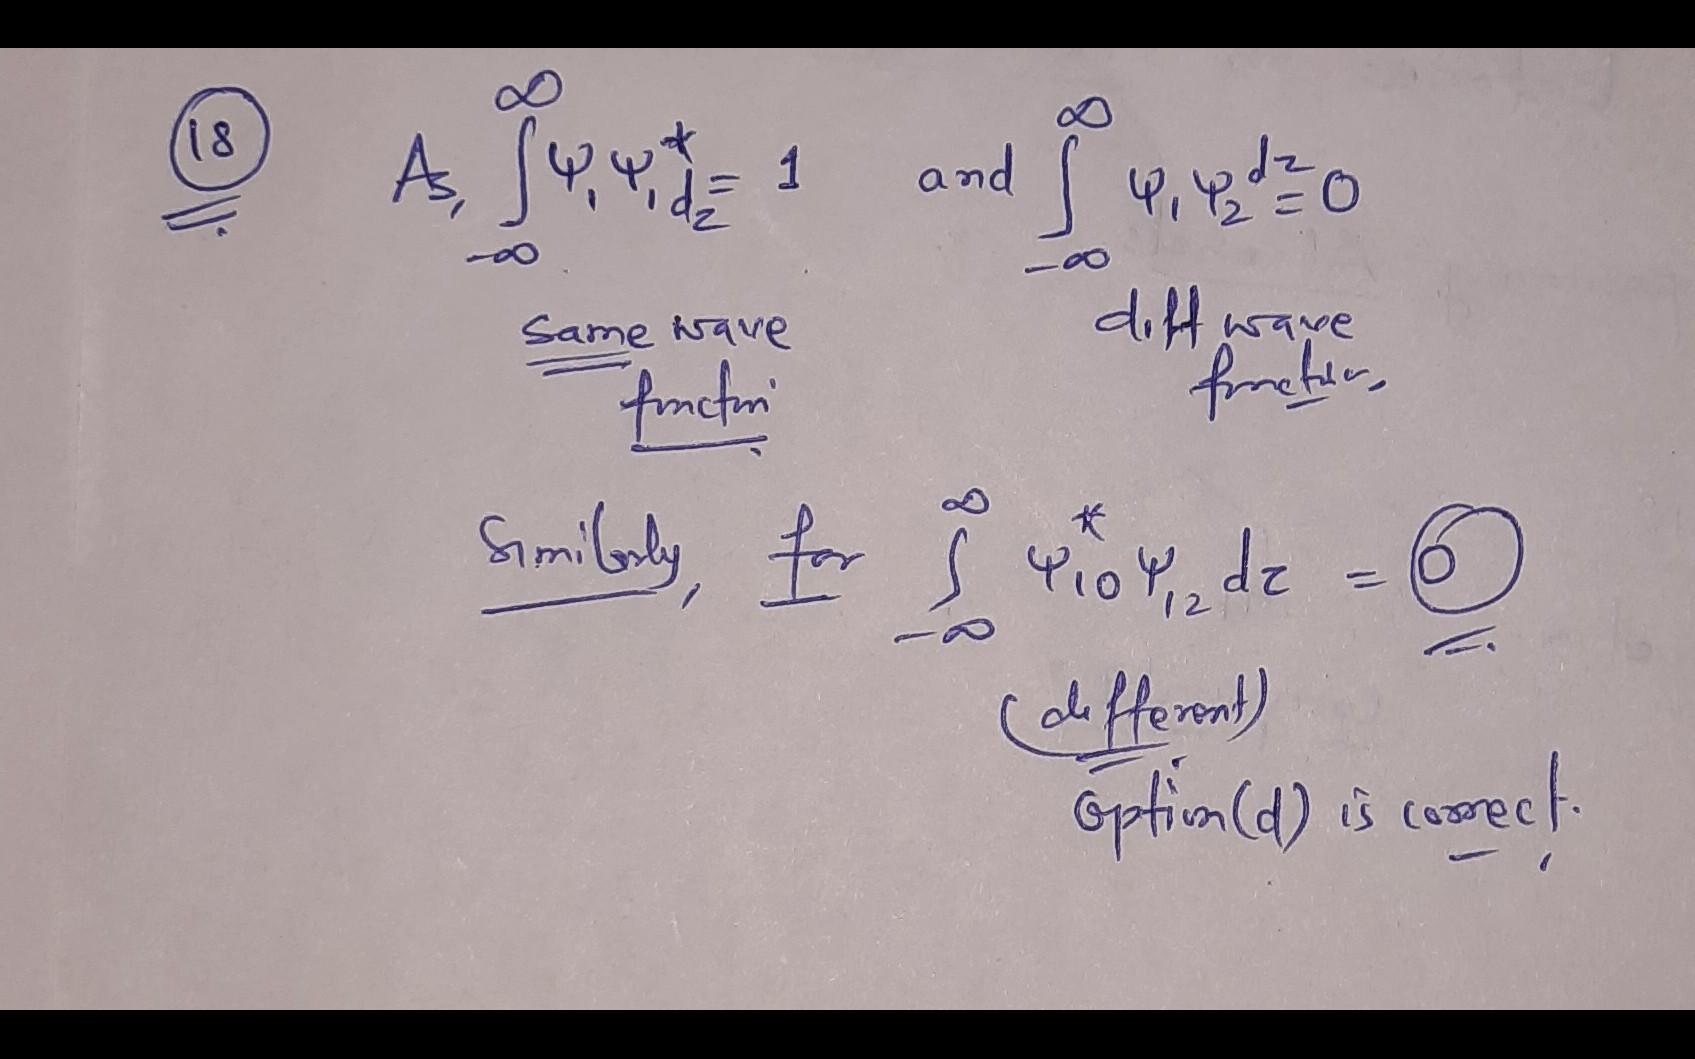 18 As, ∫_{-∞}^{∞} ψ₁ψ₁* dz = 1 and ∫_{-∞}^{∞} ψ₁ψ₂ dz = 0
same wave diff wave
functn function,
Similarly, for ∫_{-∞}^{∞} ψ*₁₀ ψ₁₂ dz = 0
(different)
option (d) is correct.